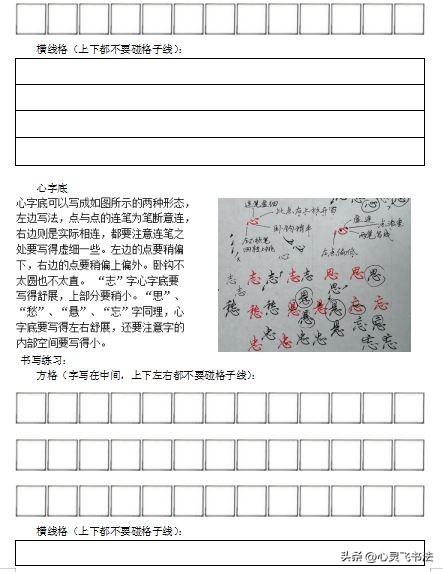 横线格（上下都不要碰格子线）：
心字底
心字底可以写成如图所示的两种形态，
左边写法，点与点的连笔为笔断意连，
右边则是实际相连，都要注意连笔之
处要写得虚细一些。左边的点要稍偏
下，右边的点要稍偏上偏外。卧钩不
太圆也不太直。 “志”字心字底要
写得舒展，上部分要稍小。“思”、
“愁”、“悬”、“忘”字同理，心
字底要写得左右舒展，还要注意字的
内部空间要写得小。
连笔虚细
卧钩稍平
虚连
左点偏低
志 志 志 志 志 思 思 思
愁 愁
书写练习：
方格（字写在中间，上下左右都不要碰格子线）：
横线格（上下都不要碰格子线）：
头条 @心灵飞书法